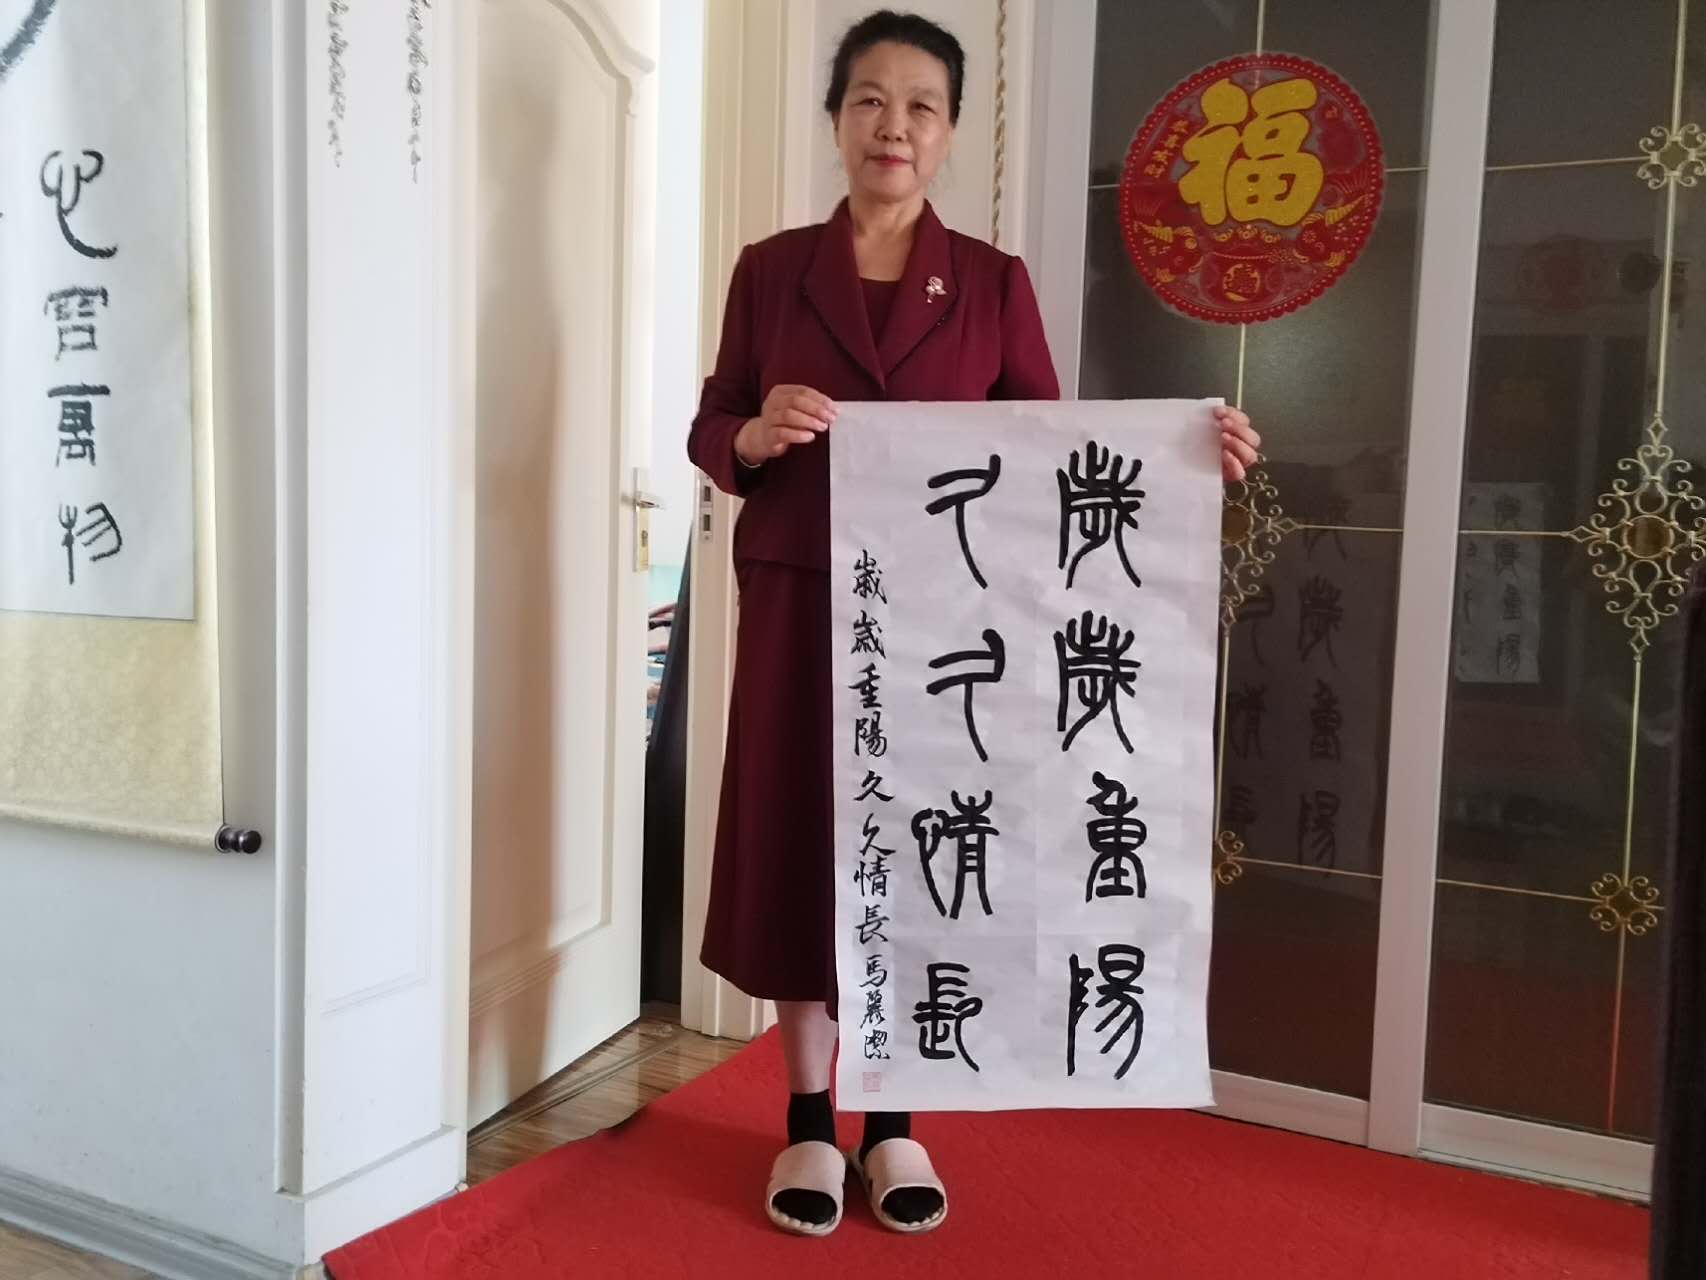 歲歲重陽
久久情長
歲歲重陽久久情長馬麗潔
福
心富萬物